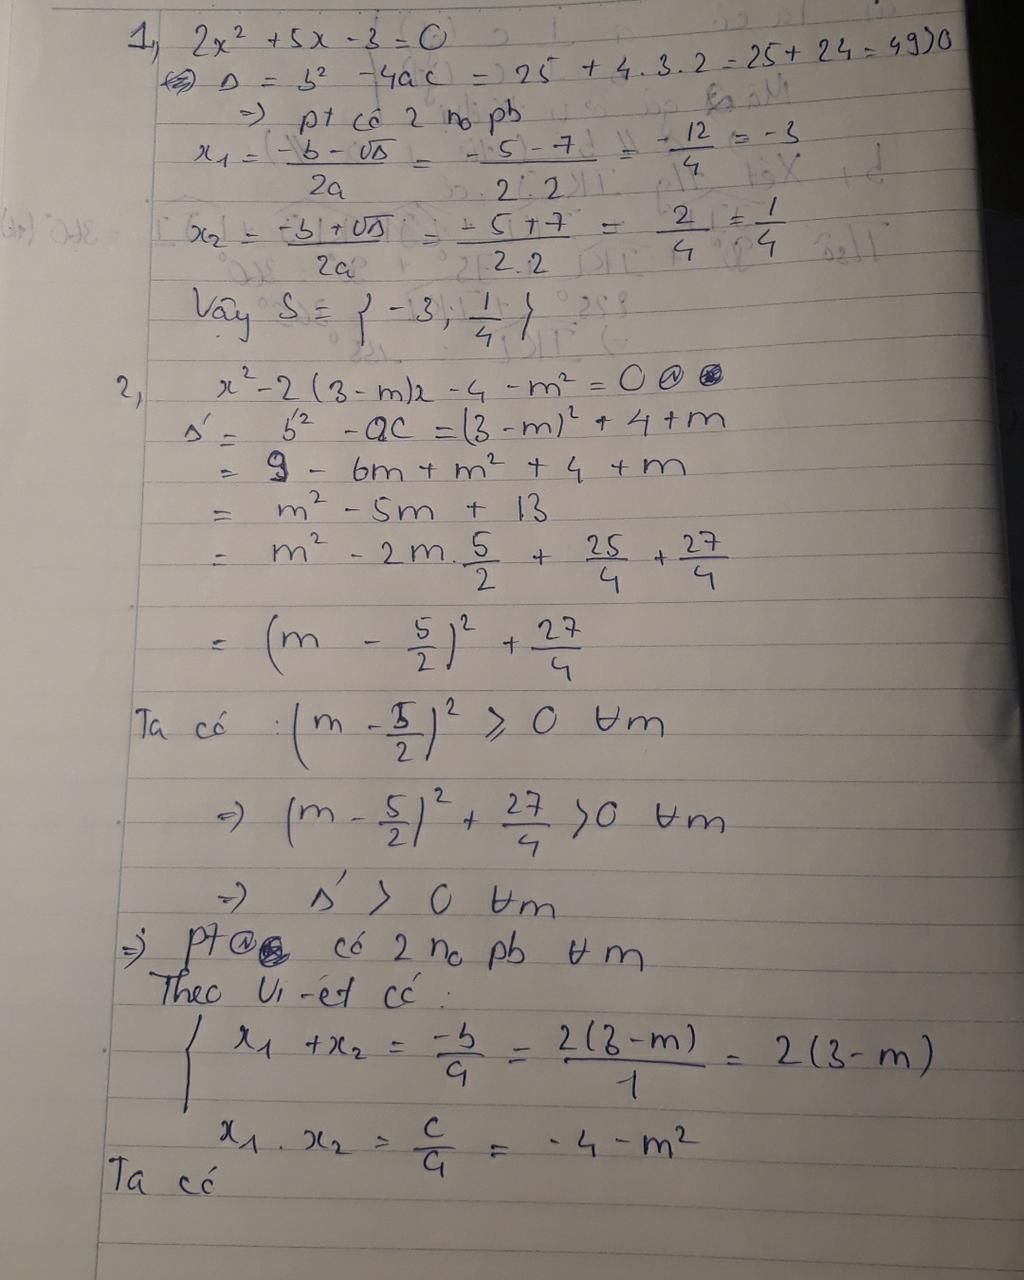 1, 2x² + 5x - 3 = 0
Δ = b² - 4ac = 25 + 4.3.2 = 25 + 24 = 49 > 0
=> pt có 2 no pb
x₁ = (-b - √Δ)/2a = (-5 - 7)/2.2 = -12/4 = -3
x₂ = (-b + √Δ)/2a = (-5 + 7)/2.2 = 2/4 = 1/4
Vậy S = {-3; 1/4}
2, x² - 2(3 - m)x - 4 - m² = 0 @
Δ' = b'² - ac = (3 - m)² + 4 + m
= 9 - 6m + m² + 4 + m
= m² - 5m + 13
= m² - 2m.5/2 + 25/4 + 27/4
= (m - 5/2)² + 27/4
Ta có : (m - 5/2)² ≥ 0 ∀m
=> (m - 5/2)² + 27/4 > 0 ∀m
=> Δ' > 0 ∀m
=> pt @ có 2 no pb ∀m
Theo Vi-ét có :
{ x₁ + x₂ = -b/a = 2(3 - m)/1 = 2(3 - m)
x₁ . x₂ = c/a = -4 - m²
Ta có